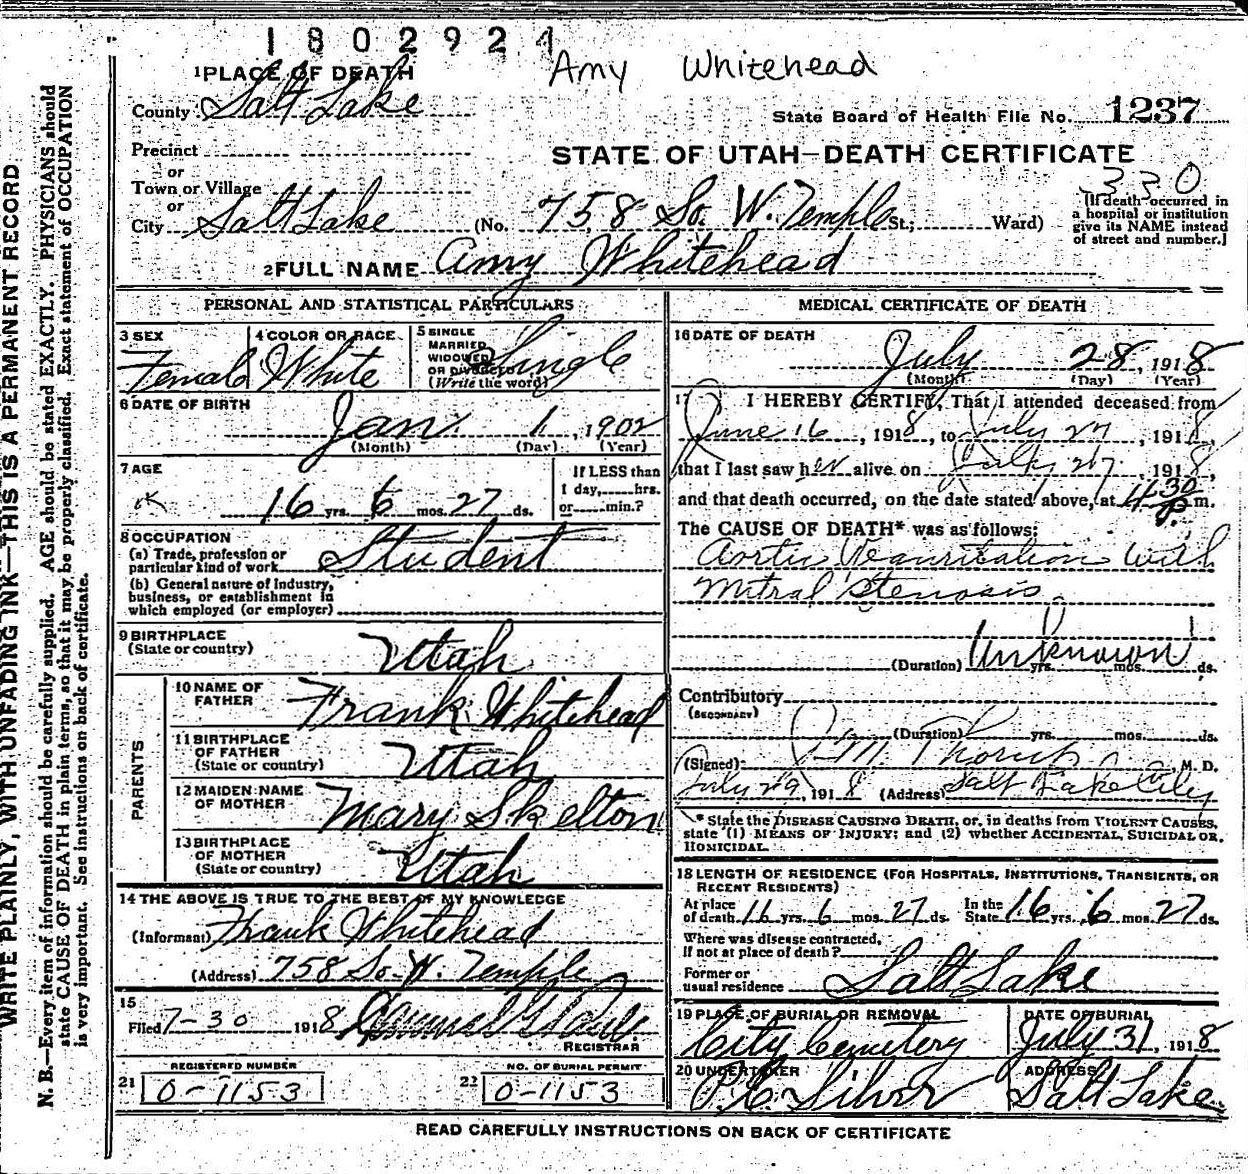 1802924
Amy Whitehead
1 PLACE OF DEATH
County Salt Lake
State Board of Health File No. 1237
Precinct
or
Town or Village
or
City Salt Lake (No. 758 So. W. Temple St.; Ward)
STATE OF UTAH—DEATH CERTIFICATE
330
[If death occurred in
a hospital or institution
give its NAME instead
of street and number.]
2 FULL NAME Amy Whitehead
PERSONAL AND STATISTICAL PARTICULARS
3 SEX
Female
4 COLOR OR RACE
White
5 SINGLE
MARRIED
WIDOWED
OR DIVORCED
(Write the word)
Single
6 DATE OF BIRTH
Jan. 1, 1902
(Month) (Day) (Year)
7 AGE
16 yrs. 6 mos. 27 ds.
If LESS than
1 day, hrs.
or min.?
8 OCCUPATION
(a) Trade, profession or
particular kind of work Student
(b) General nature of Industry,
business, or establishment in
which employed (or employer)
9 BIRTHPLACE
(State or country) Utah
PARENTS
10 NAME OF
FATHER Frank Whitehead
11 BIRTHPLACE
OF FATHER
(State or country) Utah
12 MAIDEN NAME
OF MOTHER Mary Skelton
13 BIRTHPLACE
OF MOTHER
(State or country) Utah
14 THE ABOVE IS TRUE TO THE BEST OF MY KNOWLEDGE
(Informant) Frank Whitehead
(Address) 758 So. W. Temple
15
Filed 7-30 1918
REGISTRAR
REGISTERED NUMBER
21 0-1153
NO. OF BURIAL PERMIT
22 0-1153
MEDICAL CERTIFICATE OF DEATH
16 DATE OF DEATH
July 28, 1918
(Month) (Day) (Year)
17 I HEREBY CERTIFY, That I attended deceased from
June 16, 1918, to July 27, 1918,
that I last saw her alive on July 27, 1918,
and that death occurred, on the date stated above, at 4 30 p.m.
The CAUSE OF DEATH* was as follows:
Aortic with
Mitral Stenosis
(Duration) Unknown yrs. mos. ds.
Contributory
(SECONDARY)
(Duration) yrs. mos. ds.
(Signed) M. D.
July 29, 1918 (Address) Salt Lake City
* State the DISEASE CAUSING DEATH, or, in deaths from VIOLENT CAUSES,
state (1) MEANS OF INJURY; and (2) whether ACCIDENTAL, SUICIDAL OR.
HOMICIDAL.
18 LENGTH OF RESIDENCE (FOR HOSPITALS, INSTITUTIONS, TRANSIENTS, OR
RECENT RESIDENTS)
At place
of death 16 yrs. 6 mos. 27 ds.
In the
State 16 yrs. 6 mos. 27 ds.
Where was disease contracted,
If not at place of death?
Former or
usual residence Salt Lake
19 PLACE OF BURIAL OR REMOVAL
City Cemetery
DATE OF BURIAL
July 31, 1918
20 UNDERTAKER
Silver
ADDRESS
Salt Lake.
READ CAREFULLY INSTRUCTIONS ON BACK OF CERTIFICATE
WRITE PLAINLY, WITH UNFADING INK—THIS IS A PERMANENT RECORD
N. B.—Every item of information should be carefully supplied. AGE should be stated EXACTLY. PHYSICIANS should
state CAUSE OF DEATH in plain terms, so that it may be properly classified. Exact statement of OCCUPATION
is very important. See instructions on back of certificate.